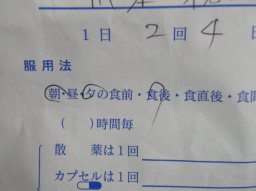 1日 2回 4日
服用法
朝・昼・夕の食前・食後・食直後・食間
( )時間毎
散 薬は1回
カプセルは1回